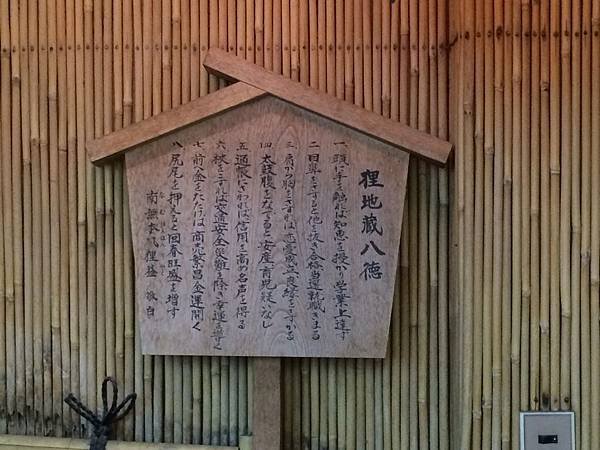 狸地蔵八徳
一、頭に手を触れば知恵を授かり学業上達す
二、目鼻をさすると他を抜き合格当選就職きまる
三、肩から胸をさすれば恋愛成立良縁をさずかる
四、太鼓腹をなでると安産育児疑いなし
五、通帳にさわれば信用を高め名声を得る
六、杖をこすれば交通安全災難を除き幸運を導く
七、前の金をたたけば商売繁昌金運開く
八、尻尾を押えると回春旺盛を増す
南無本 狸 敬白